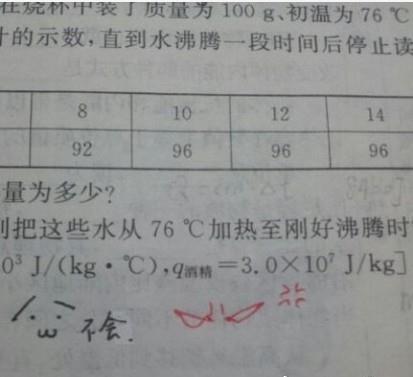 在烧杯中装了质量为100 g、初温为76 ℃
计的示数,直到水沸腾一段时间后停止读
8 10 12 14
92 96 96 96
量为多少?
则把这些水从76 ℃加热至刚好沸腾时
0³ J/(kg·℃),q酒精=3.0×10⁷ J/kg]
不会.